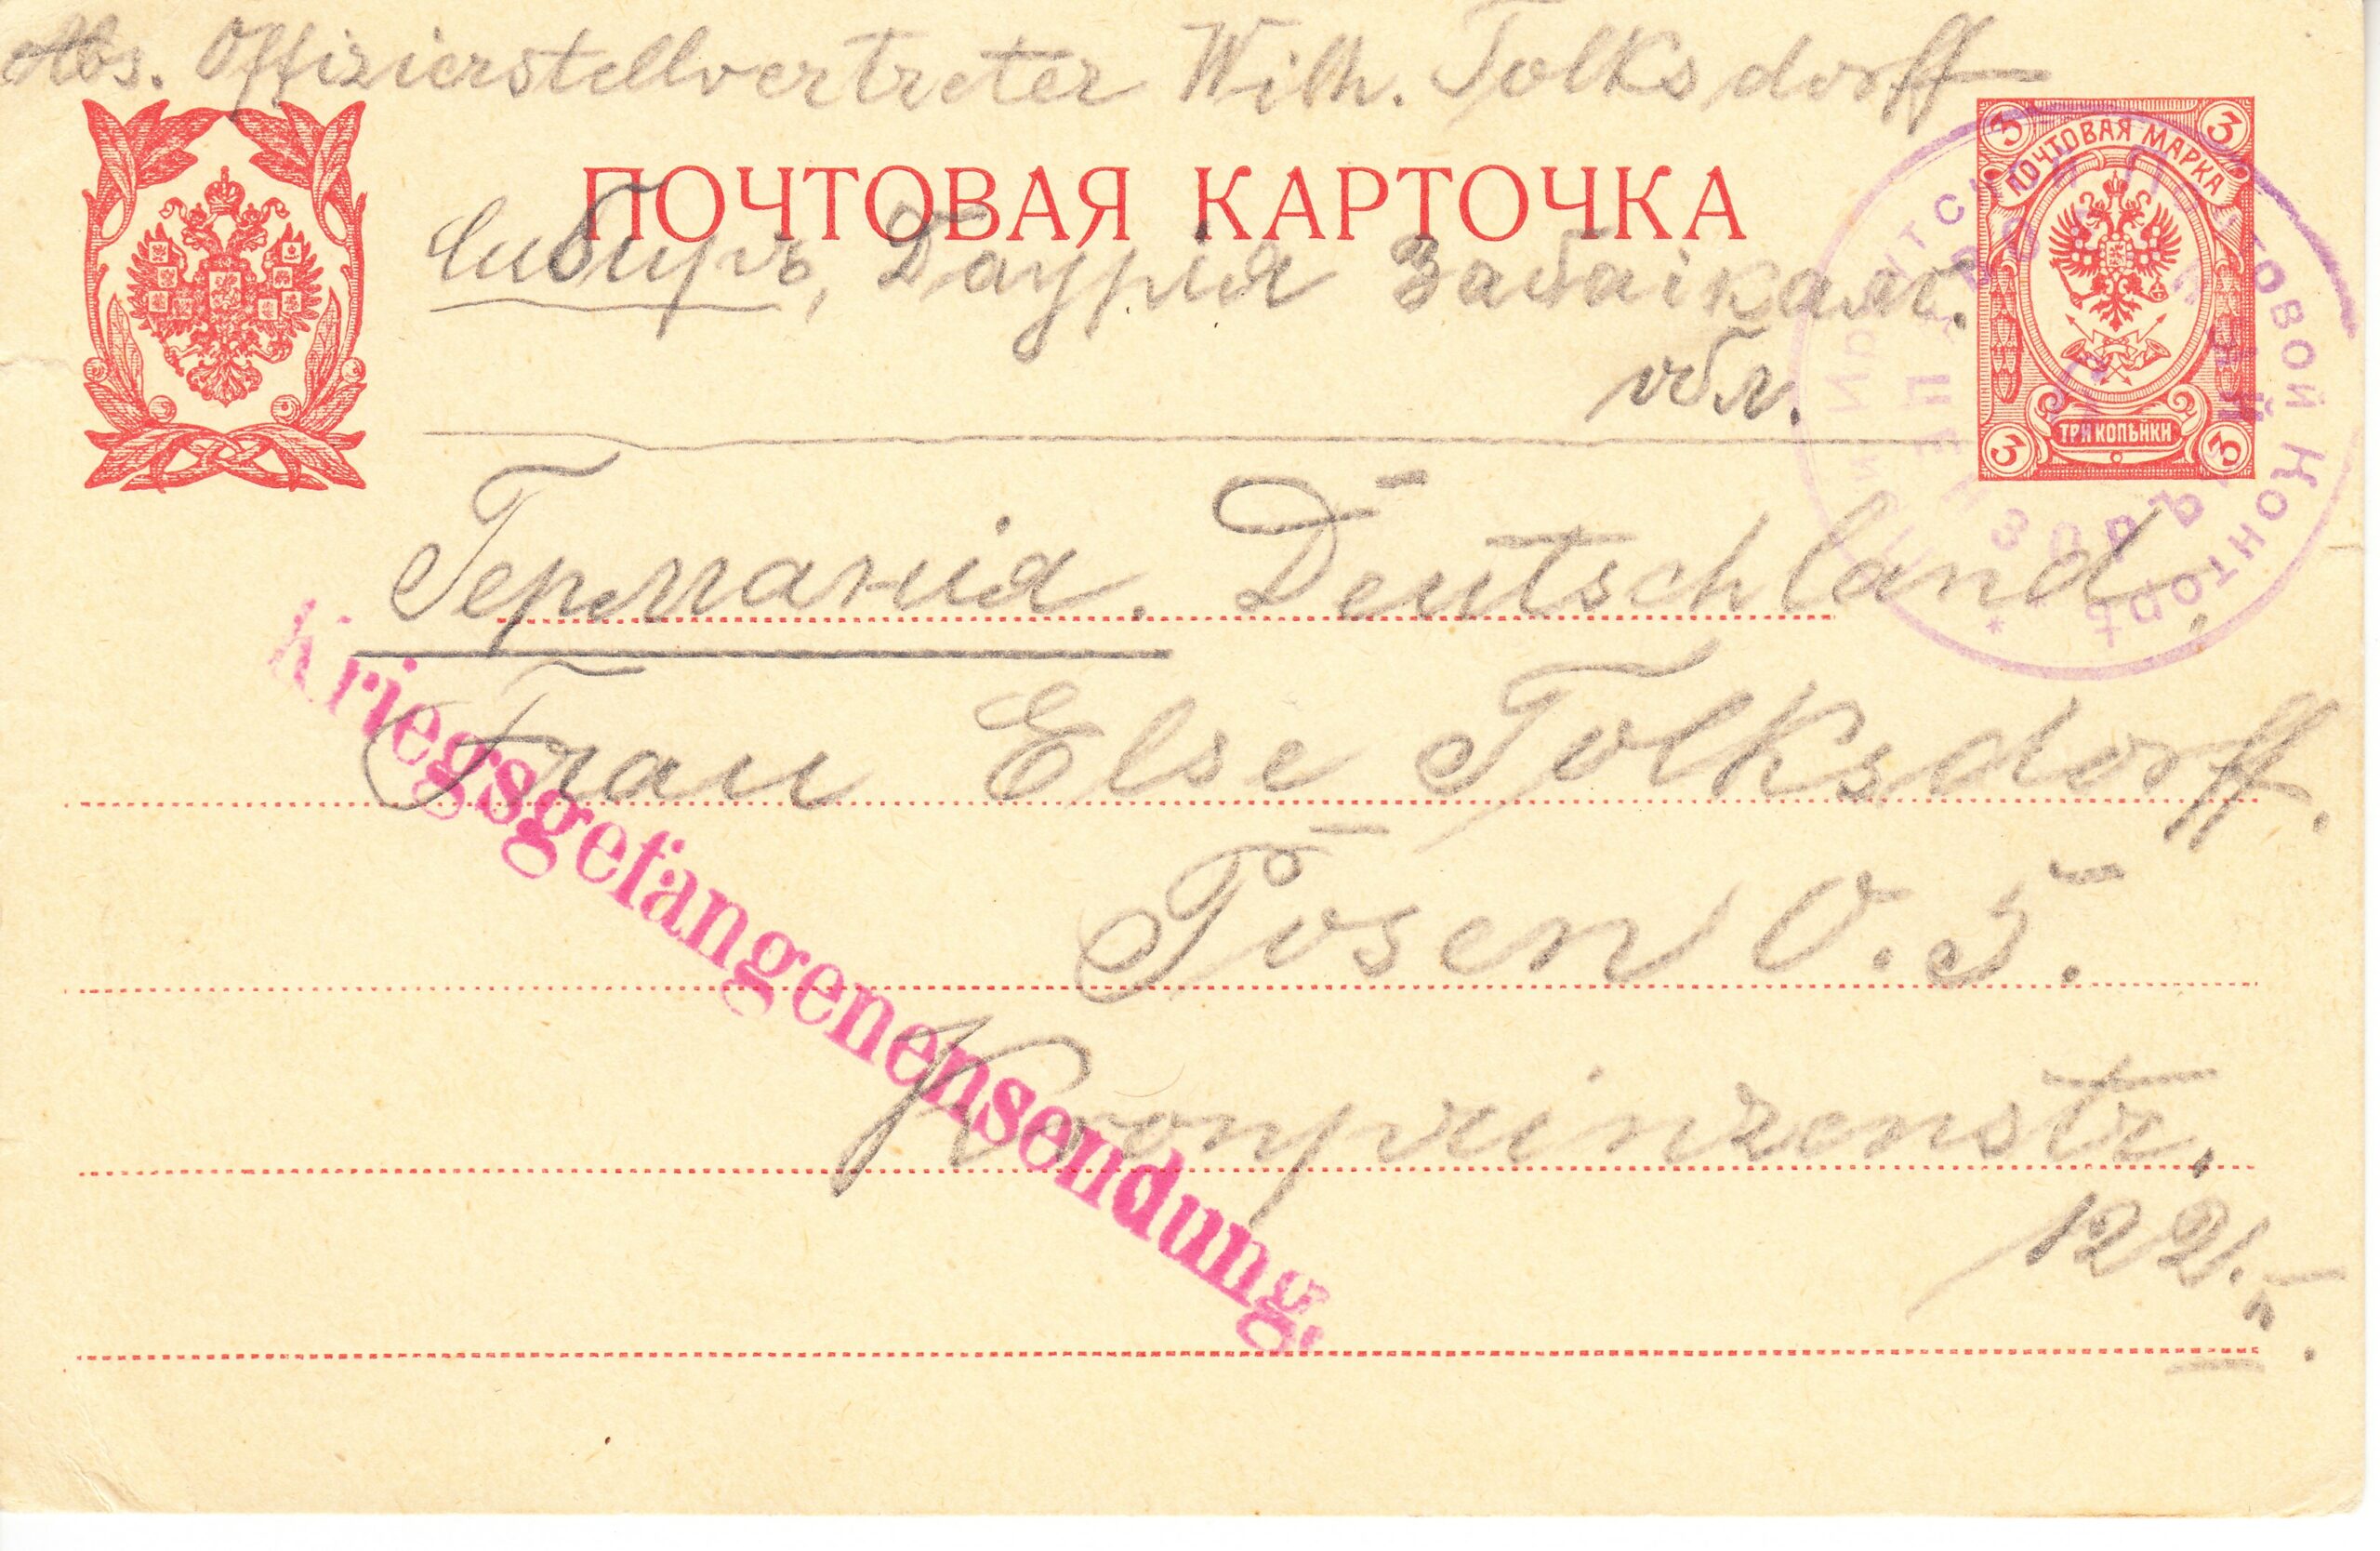 Abs. Offizierstellvertreter Wilh. Tolksdorff
ПОЧТОВАЯ КАРТОЧКА
Сибирь, Даурія Забайкал.
обл.
3 3
ПОЧТОВАЯ МАРКА
ТРИ КОПѢЙКИ
3 3
Германія. Deutschland,
Frau Else Tolksdorff.
Posen O. 5.
Kronprinzenstr.
122.
Kriegsgefangenensendung.